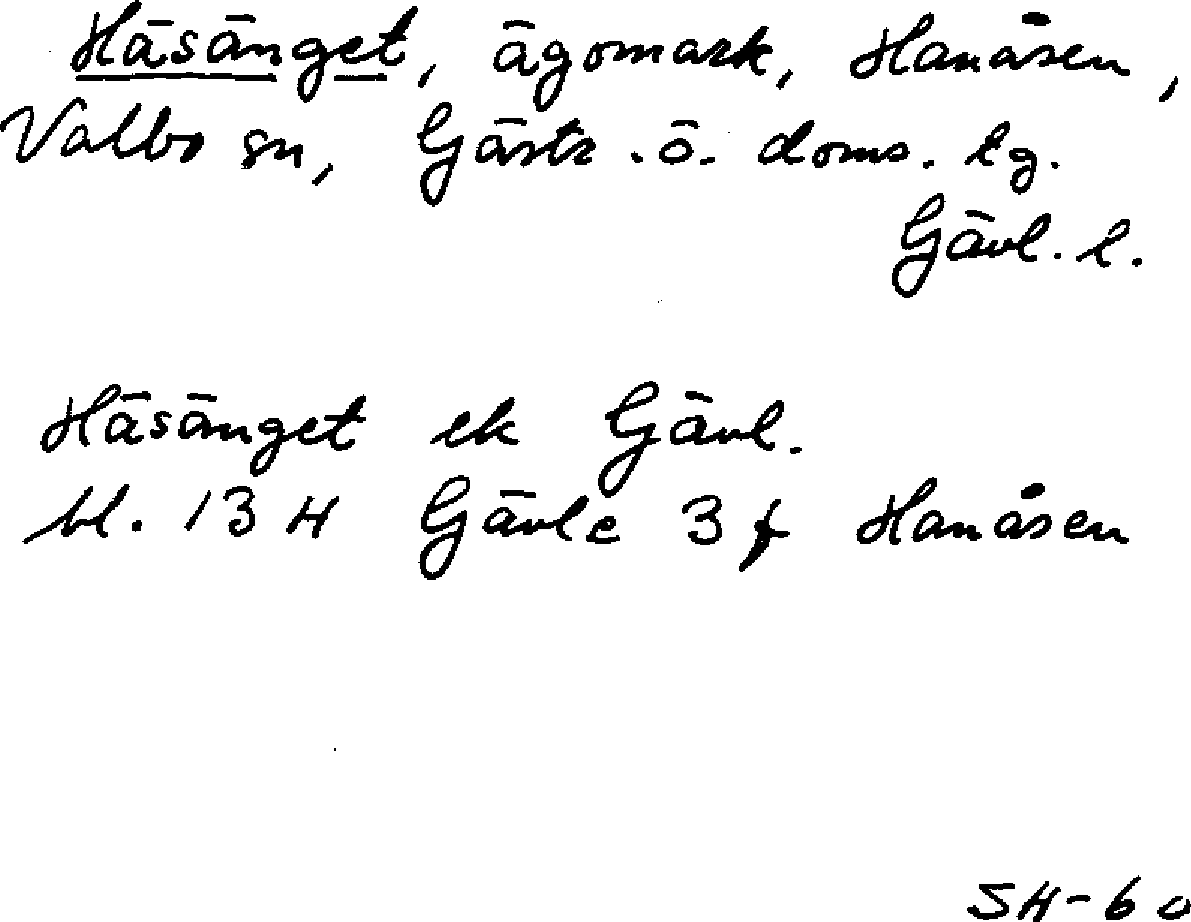 Häsänget, ägomark, Hanåsen,
Valbo sn, Gästr. ö. doms. lg.
Gävl. l.
Häsänget ek Gävl.
bl. 13 H Gävle 3 f Hanåsen
SH-60